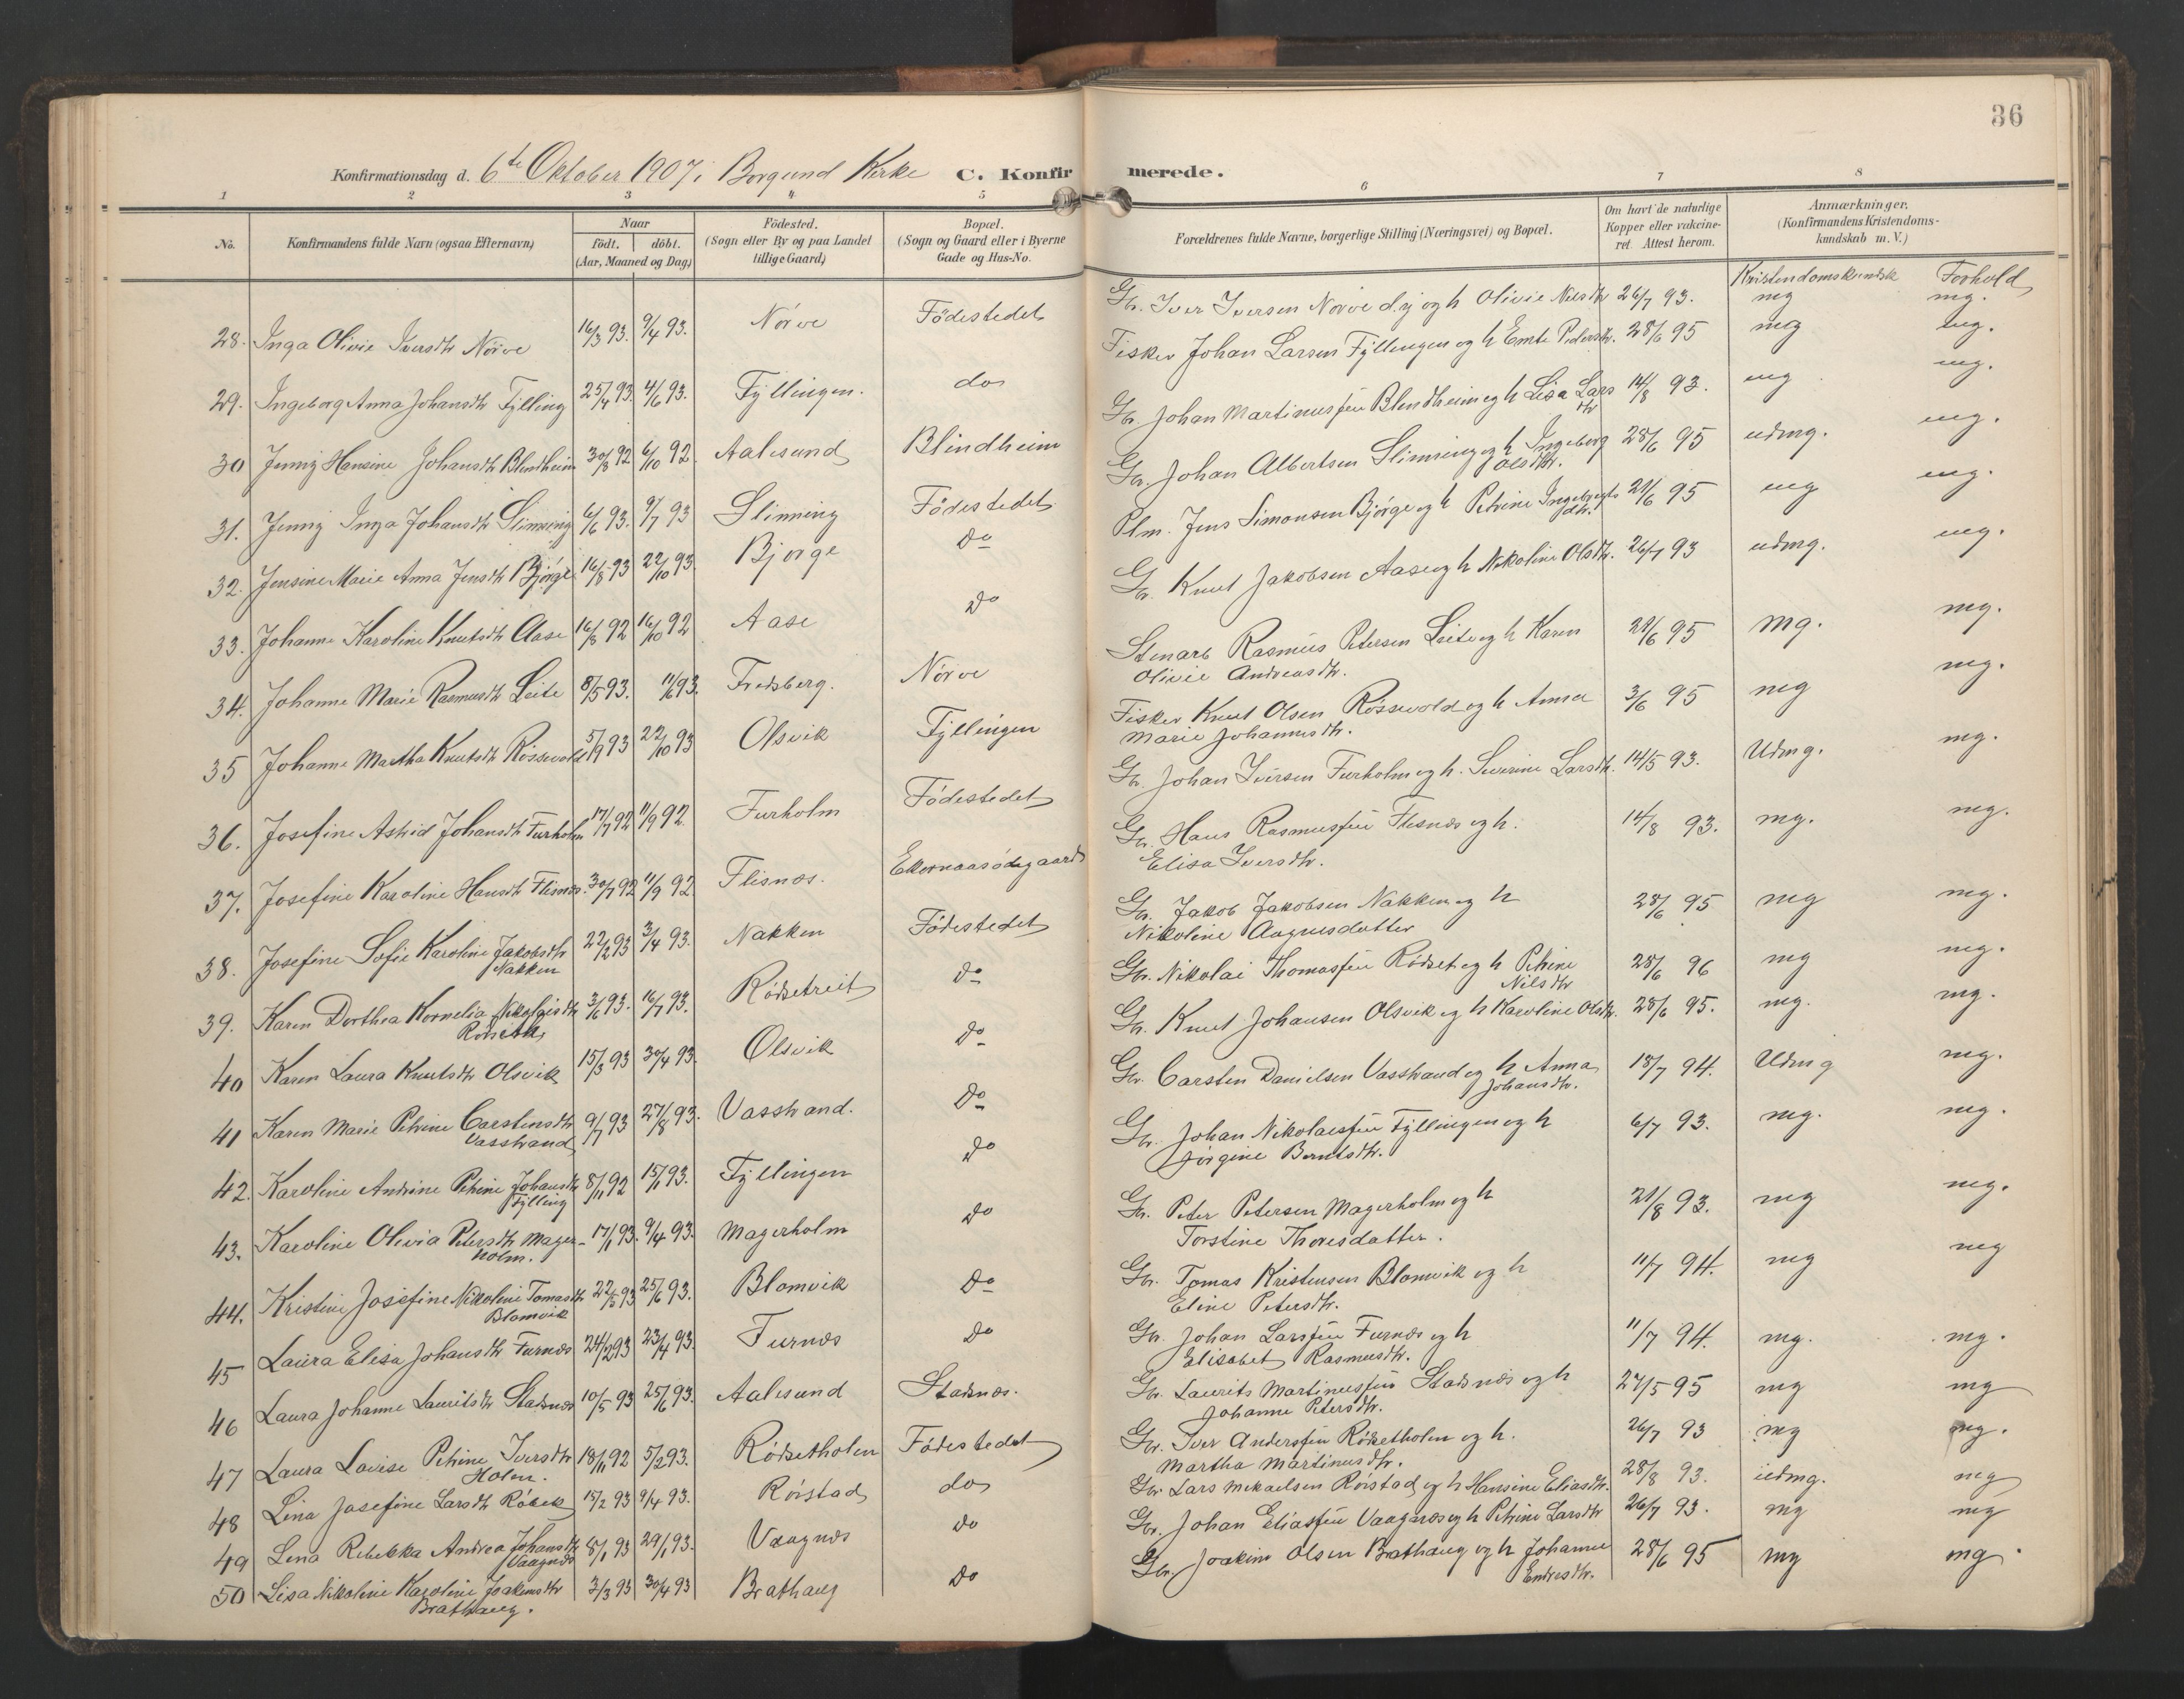 36
Konfirmationsdag d. 6te Oktober 1907 i Borgund Kirke C. Konfirmerede.
1 2 3 4 5 6 7 8
No. Konfirmandens fulde Navn (ogsaa Efternavn) Naar født. døbt. (Aar, Maaned og Dag) Födested. (Sogn eller By og paa Landet tillige Gaard) Bopæl. (Sogn og Gaard eller i Byerne Gade og Hus-No. Forældrenes fulde Navne, borgerlige Stilling (Næringsvei) og Bopæl. Om havt de naturlige Kopper eller vakcineret. Attest herom. Anmærkninger. (Konfirmandens Kristendomskundskab m. V.)
Kristendomskundsk Forhold
28. Inga Olivie Iversdtr Nørve 16/3 93. 9/4 93. Nørve Fødestedet Gbr. Iver Iversen Nørve d.y og h Olivie Nilsdtr 26/7 93. mg mg.
29. Ingeborg Anna Johansdtr Fylling 25/4 93. 4/6 93. Fyllingen. do Fisker Johan Larsen Fyllingen og h Emte Pedersdtr. 28/6 95 mg mg.
30 Jenny Hansine Johansdtr Blindheim 30/8 92 6/10 92. Aalesund Blindheim Gbr. Johan Martinussen Blindheim og h Lisa Larsdtr 14/8 93. mg mg.
31. Jenny Inga Johansdtr Slinning 6/6 93. 9/7 93 Slinning Fødestedet Gbr. Johan Albertsen Slinning og h Ingeborg Olsdtr. 28/6 95 udmg. mg.
32. Jensine Marie Anna Jensdtr Bjørge 16/8 93 22/10 93 Bjørge Do Plm. Jens Simonsen Bjørge og h Petrine Ingebrigtsdtr. 21/6 95 mg mg.
33. Johanne Karoline Knutsdtr Aase 16/8 92 16/10 92 Aase Do Gbr. Knut Jakobsen Aase og h Nikoline Olsdtr. 26/7 93 udmg. mg.
34. Johanne Marie Rasmusdtr Leite 8/5 93. 11/6 93. Fredsberg. Nørve Stenarb Rasmus Petersen Leite og h Karen Olivie Andreasdtr. 21/6 95 mg. mg.
35 Johanne Martha Knutsdtr Røssevold 5/9 93 22/10 93 Olsvik Fyllingen Fisker Knut Olsen Røssevold og h Anna Marie Johannesdtr. 3/6 95 mg mg.
36. Josefine Astrid Johansdtr Furholm 17/7 92 11/9 92. Furholm Fødestedet Gbr. Johan Iversen Furholm og h. Severine Larsdtr. 14/5 93. Udmg. mg.
37. Josefine Karoline Hansdtr Flisnæs. 30/7 92 11/9 92 Flisnæs. Ekornaasødegaard Gbr. Hans Rasmussen Flisnæs og h. Elisa Iversdtr. 14/8 93. mg. mg.
38. Josefine Sofie Karoline Jakobsdtr Nakken 22/2 93 3/4 93. Nakken Fødestedet Gbr. Jakob Jakobsen Nakken og h Nikoline Aagnesdatter 28/6 95 mg mg.
39. Karen Dorthea Kornelia Nikolaisdtr Rødseth 3/6 93. 16/7 93. Rødsetreit Do Gbr. Nikolai Thomassen Rødset og h Petrine Nilsdtr 28/6 96 mg mg.
40 Karen Laura Knutsdtr Olsvik 15/3 93 30/4 93. Olsvik Do Gbr. Knut Johansen Olsvik og h Karoline Olsdtr. 28/6 95. mg. mg.
41 Karen Marie Petrine Carstensdtr Vasstrand 9/7 93 27/8 93. Vasstrand. Do Gbr. Carsten Danielsen Vasstrand og h Anna Johansdtr. 18/7 94. Udmg mg.
42. Karoline Andrine Petrine Johansdtr Fylling 8/11 92 15/1 93. Fyllingen Do Gbr. Johan Nikolaisen Fyllingen og h Jørgine Berntsdtr. 6/7 93. mg. mg.
43. Karoline Olivia Petersdtr Magerholm. 17/1 93. 9/4 93. Magerholm Do Gbr. Peter Petersen Magerholm og h Torstine Thoresdatter. 21/8 93. mg mg.
44. Kristine Josefine Nikoline Tomasdtr Blomvik 22/5 93 25/6 93. Blomvik Do Gbr. Tomas Kristensen Blomvik og h Eline Petersdtr. 11/7 94. mg mg
45 Laura Elisa Johansdtr Furnæs 24/2 93 23/4 93. Furnæs Do Gbr. Johan Larssen Furnæs og h Elisabet Rasmusdtr. 11/7 94. mg. mg.
46 Laura Johanne Lauritsdtr Stadsnæs 10/5 93 25/6 93. Aalesund Stadsnæs. Gbr. Laurits Martinussen Stadsnæs og h Johanne Petersdtr. 27/5 95 mg mg
47 Laura Lovise Petrine Iversdtr Holen. 18/11 92 5/2 93. Rødsetholen Fødestedet Gbr. Iver Anderssen Rødsetholen og h. Martha Martinusdtr. 26/7 93 mg mg.
48 Lina Josefine Larsdtr Røbek 15/2 93 9/4 93. Rørstad do Gbr. Lars Mikaelsen Rørstad og h Hansine Eliasdtr. 28/8 93. udmg. mg
49 Lina Rebekka Andrea Johansdtr Vaagnæs 8/1 93 29/1 93. Vaagnæs Do Gbr. Johan Eliassen Vaagnæs og h Petrine Larsdtr 26/7 93. mg mg
50 Lisa Nikoline Karoline Joakimsdtr Brathaug. 3/3 93 30/4 93 Brathaug Do Gbr. Joakim Olsen Brathaug og h Johanne Endresdtr. 28/6 95 mg mg.